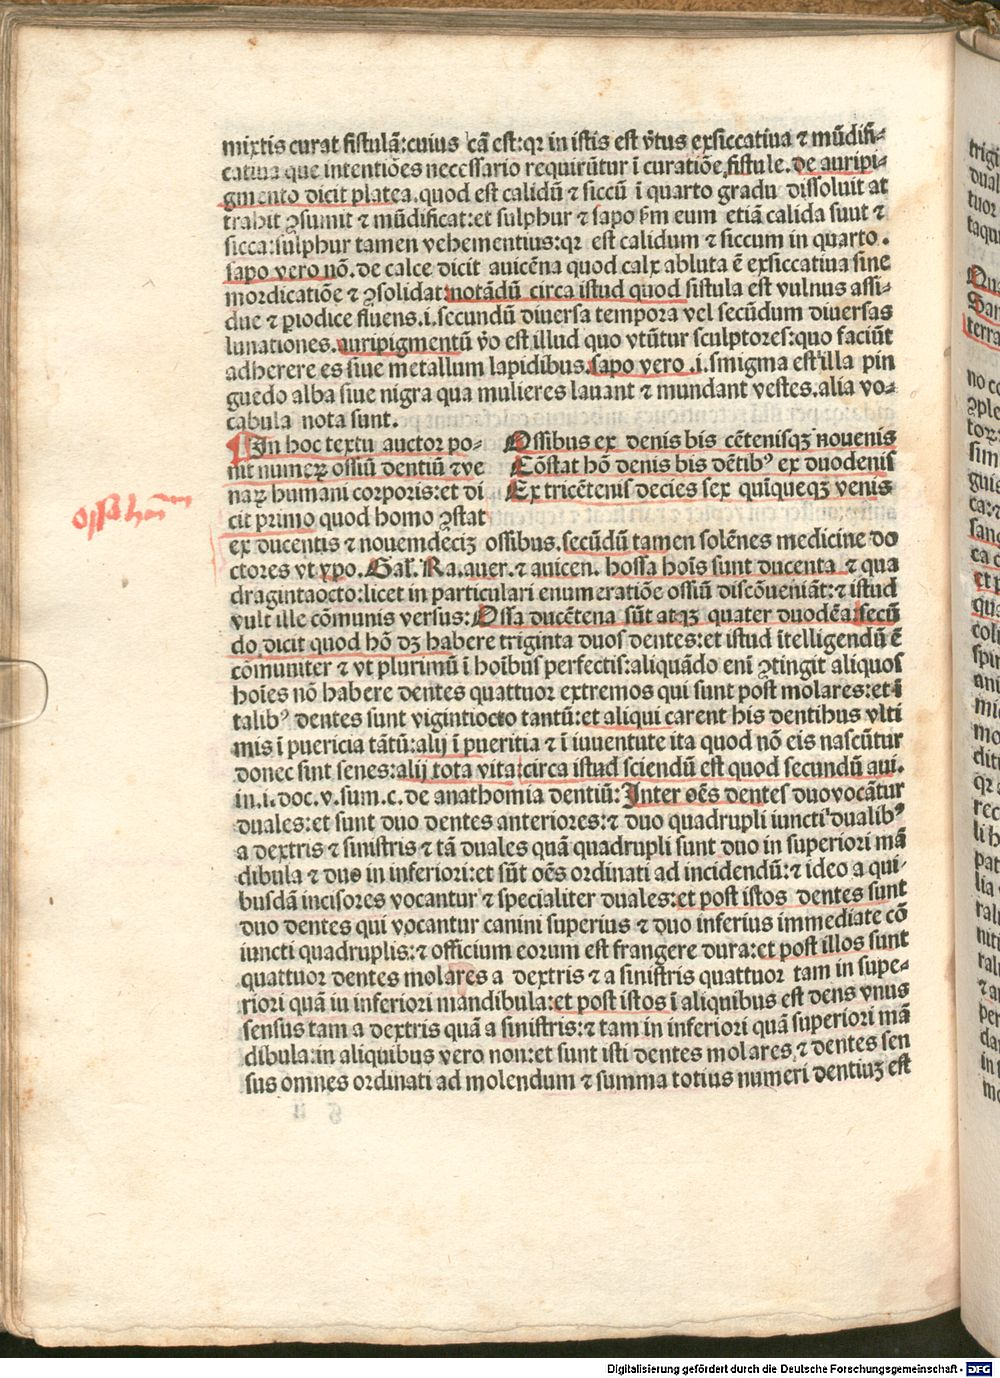 mixtis curat fistulā:cuius cā est:qꝛ in istis est v̄tus exsiccatiua ⁊ mūdifi-
catiua que intentiōes necessario requirūtur ī curatiōe fistule.de auripi-
gmento dicit platea.quod est calidū ⁊ siccū ī quarto gradu dissoluit at
trahit ꝯsumit ⁊ mūdificat:et sulphur ⁊ sapo ẜm eum etiā calida sunt ⁊
sicca:sulphur tamen vehementius:qꝛ est calidum ⁊ siccum in quarto.
sapo vero nō.de calce dicit auicēna quod calx abluta ē exsiccatiua sine
mordicatiōe ⁊ ꝯsolidat:notādū circa istud quod fistula est vulnus assi-
due ⁊ ꝑiodice fluens.i.secundū diuersa tempora vel secūdum diuersas
lunationes.auripigmentū v̄o est illud quo vtūtur sculptores:quo faciūt
adherere es siue metallum lapidibus.sapo vero.i.smigma est illa pin
guedo alba siue nigra qua mulieres lauant ⁊ mundant vestes.alia vo-
cabula nota sunt.
In hoc textu auctor po-
nit numeꝝ ossiū dentiū ⁊ ve
naꝝ humani corporis:et di
cit primo quod homo ꝯstat
Ossibus ex denis bis cētenisqꝫ nouenis
Cōstat hō denis bis dētibꝰ ex duodenis
Ex tricētenis decies sex quīqueqꝫ venis
oss hoīm
ex ducentis ⁊ nouemdecīꝫ ossibus.secūdū tamen solēnes medicine do
ctores vt ypo.Gal.Ra.auer.⁊ auicen. hossa hoīs sunt ducenta ⁊ qua
dragintaocto:licet in particulari enumeratiōe ossiū discōueniāt:⁊ istud
vult ille cōmunis versus:Ossa ducētena sūt atqꝫ quater duodēa:secū
do dicit quod hō dꝫ habere triginta duos dentes:et istud ītelligendū ē
cōmuniter ⁊ vt plurimū ī hoībus perfectis:aliquādo enī ꝯtingit aliquos
hoīes nō habere dentes quattuor extremos qui sunt post molares:et ī
talibꝰ dentes sunt vigintiocto tantū:et aliqui carent his dentibus vlti
mis ī puericia tātū:alij ī pueritia ⁊ ī iuuentute ita quod nō eis nascūtur
donec sint senes:alij tota vita:circa istud sciendū est quod secundū aui.
in.i.doc.v.sum.c.de anathomia dentiū:Inter oēs dentes duo vocātur
duales:et sunt duo dentes anteriores:⁊ duo quadrupli iuncti dualibꝰ
a dextris ⁊ sinistris ⁊ tā duales quā quadrupli sunt duo in superiori mā
dibula ⁊ duo in inferiori:et sūt oēs ordinati ad incidendū:⁊ ideo a qui-
busdā incisores vocantur ⁊ specialiter duales:et post istos dentes sunt
duo dentes qui vocantur canini superius ⁊ duo inferius immediate cō
iuncti quadruplis:⁊ officium eorum est frangere dura:et post illos sunt
quattuor dentes molares a dextris ⁊ a sinistris quattuor tam in supe-
riori quā in inferiori mandibula:et post istos ī aliquibus est dens vnus
sensus tam a dextris quā a sinistris:⁊ tam in inferiori quā superiori mā
dibula:in aliquibus vero non:et sunt isti dentes molares ⁊ dentes sen
sus omnes ordinati ad molendum ⁊ summa totius numeri dentiuꝫ est
Digitalisierung gefördert durch die Deutsche Forschungsgemeinschaft - DFG